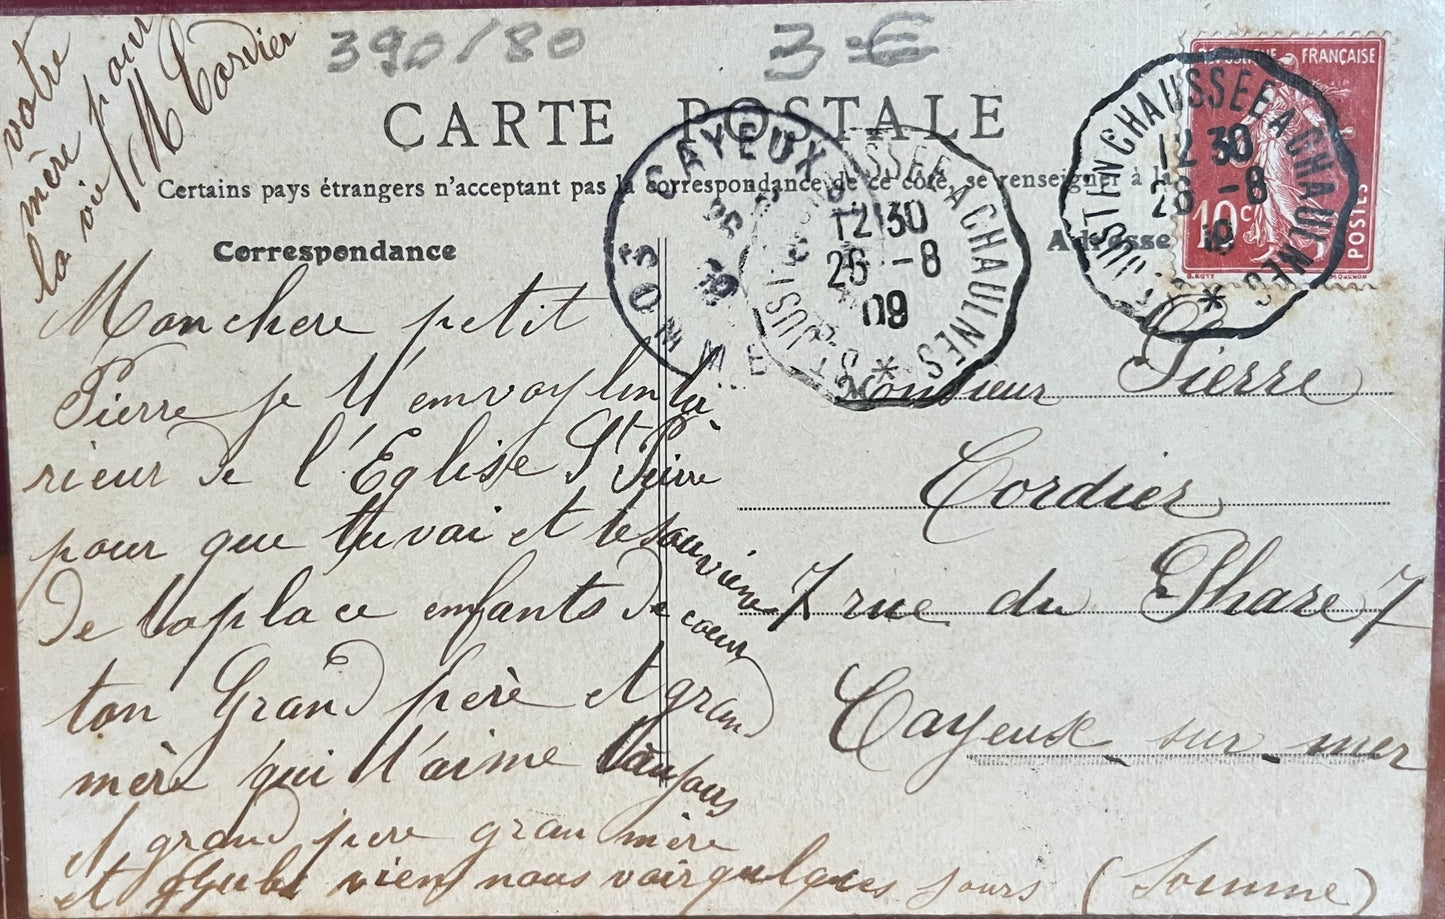 votre
mère pour
la vie
M Cordier
390/80
3 €
CARTE POSTALE
Certains pays étrangers n'acceptant pas la correspondance de ce côté, se renseigner à la
Correspondance
Adresse
REPUBLIQUE FRANÇAISE
10c
POSTES
ST JUST EN CHAUSSEE A CHAULNES
12 30
26 -8
09
ST JUST EN CHAUSSEE A CHAULNES
12 30
26 -8
09
CAYEUX S MER
SOMME
Mon chere petit
Pierre je t'envoy l'inté
rieur de l'Eglise St Pierre
pour que tu vai et te souviène
de la place enfants de coeur
ton Grand père et grand
mère qui t'aime toujours
et grand pere gran mère
et vien nous voir quelques jours
Monsieur Pierre
Cordier
7 rue du Phare 7
Cayeux sur mer
(Somme)